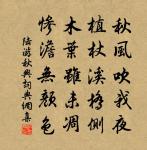 秋風吹我夜
植杖溪橋側
木葉雖未凋
慘澹無顏色
陸游秋興詞典網集